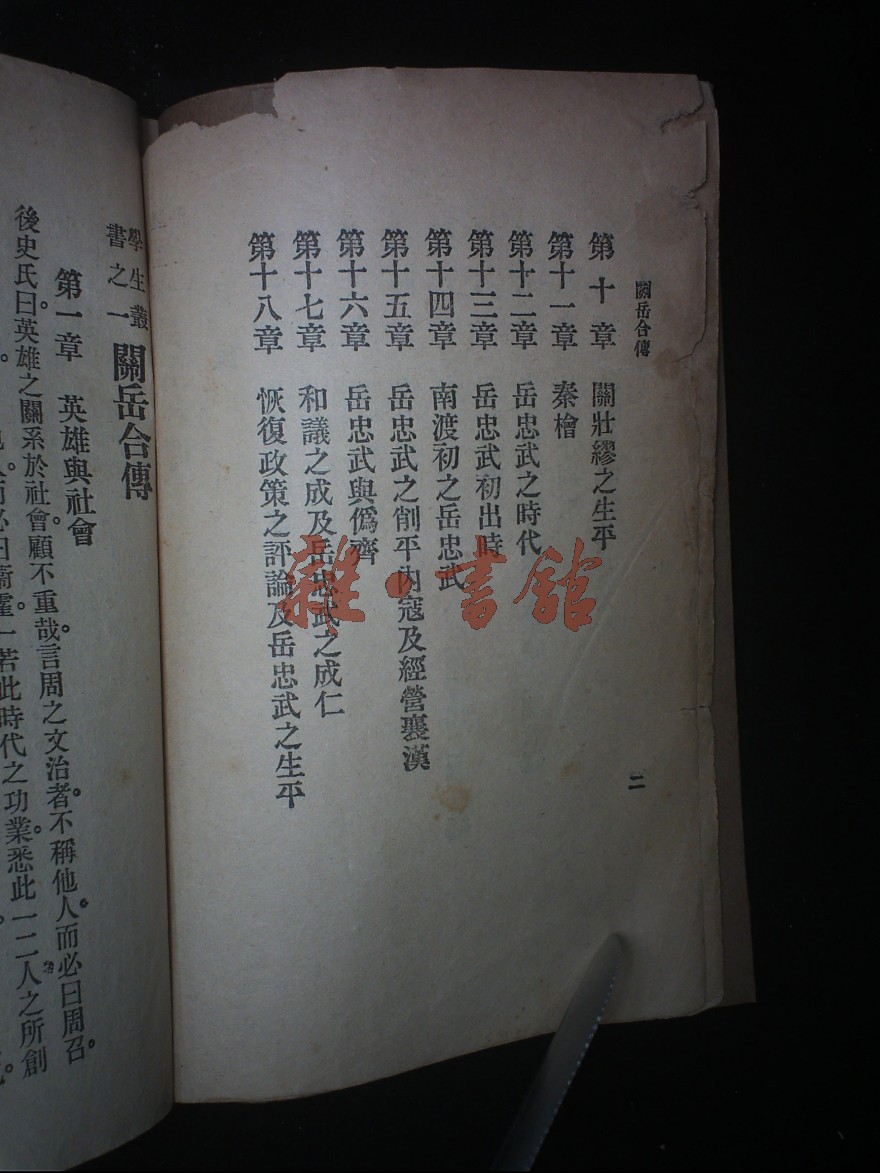 關岳合傳
第十章 關壯繆之生平
第十一章 秦檜
第十二章 岳忠武之時代
第十三章 岳忠武初出時
第十四章 南渡初之岳忠武
第十五章 岳忠武之削平內寇及經營襄漢
第十六章 岳忠武與僞齊
第十七章 和議之成及岳忠武之成仁
第十八章 恢復政策之評論及岳忠武之生平
二
雜·書館
學生叢書之一 關岳合傳
第一章 英雄與社會
後史氏曰。英雄之關系於社會。顧不重哉。言周之文治者。不稱他人。而必曰周召。
必曰衛霍。一若此時代之功業。悉此一二人之所創